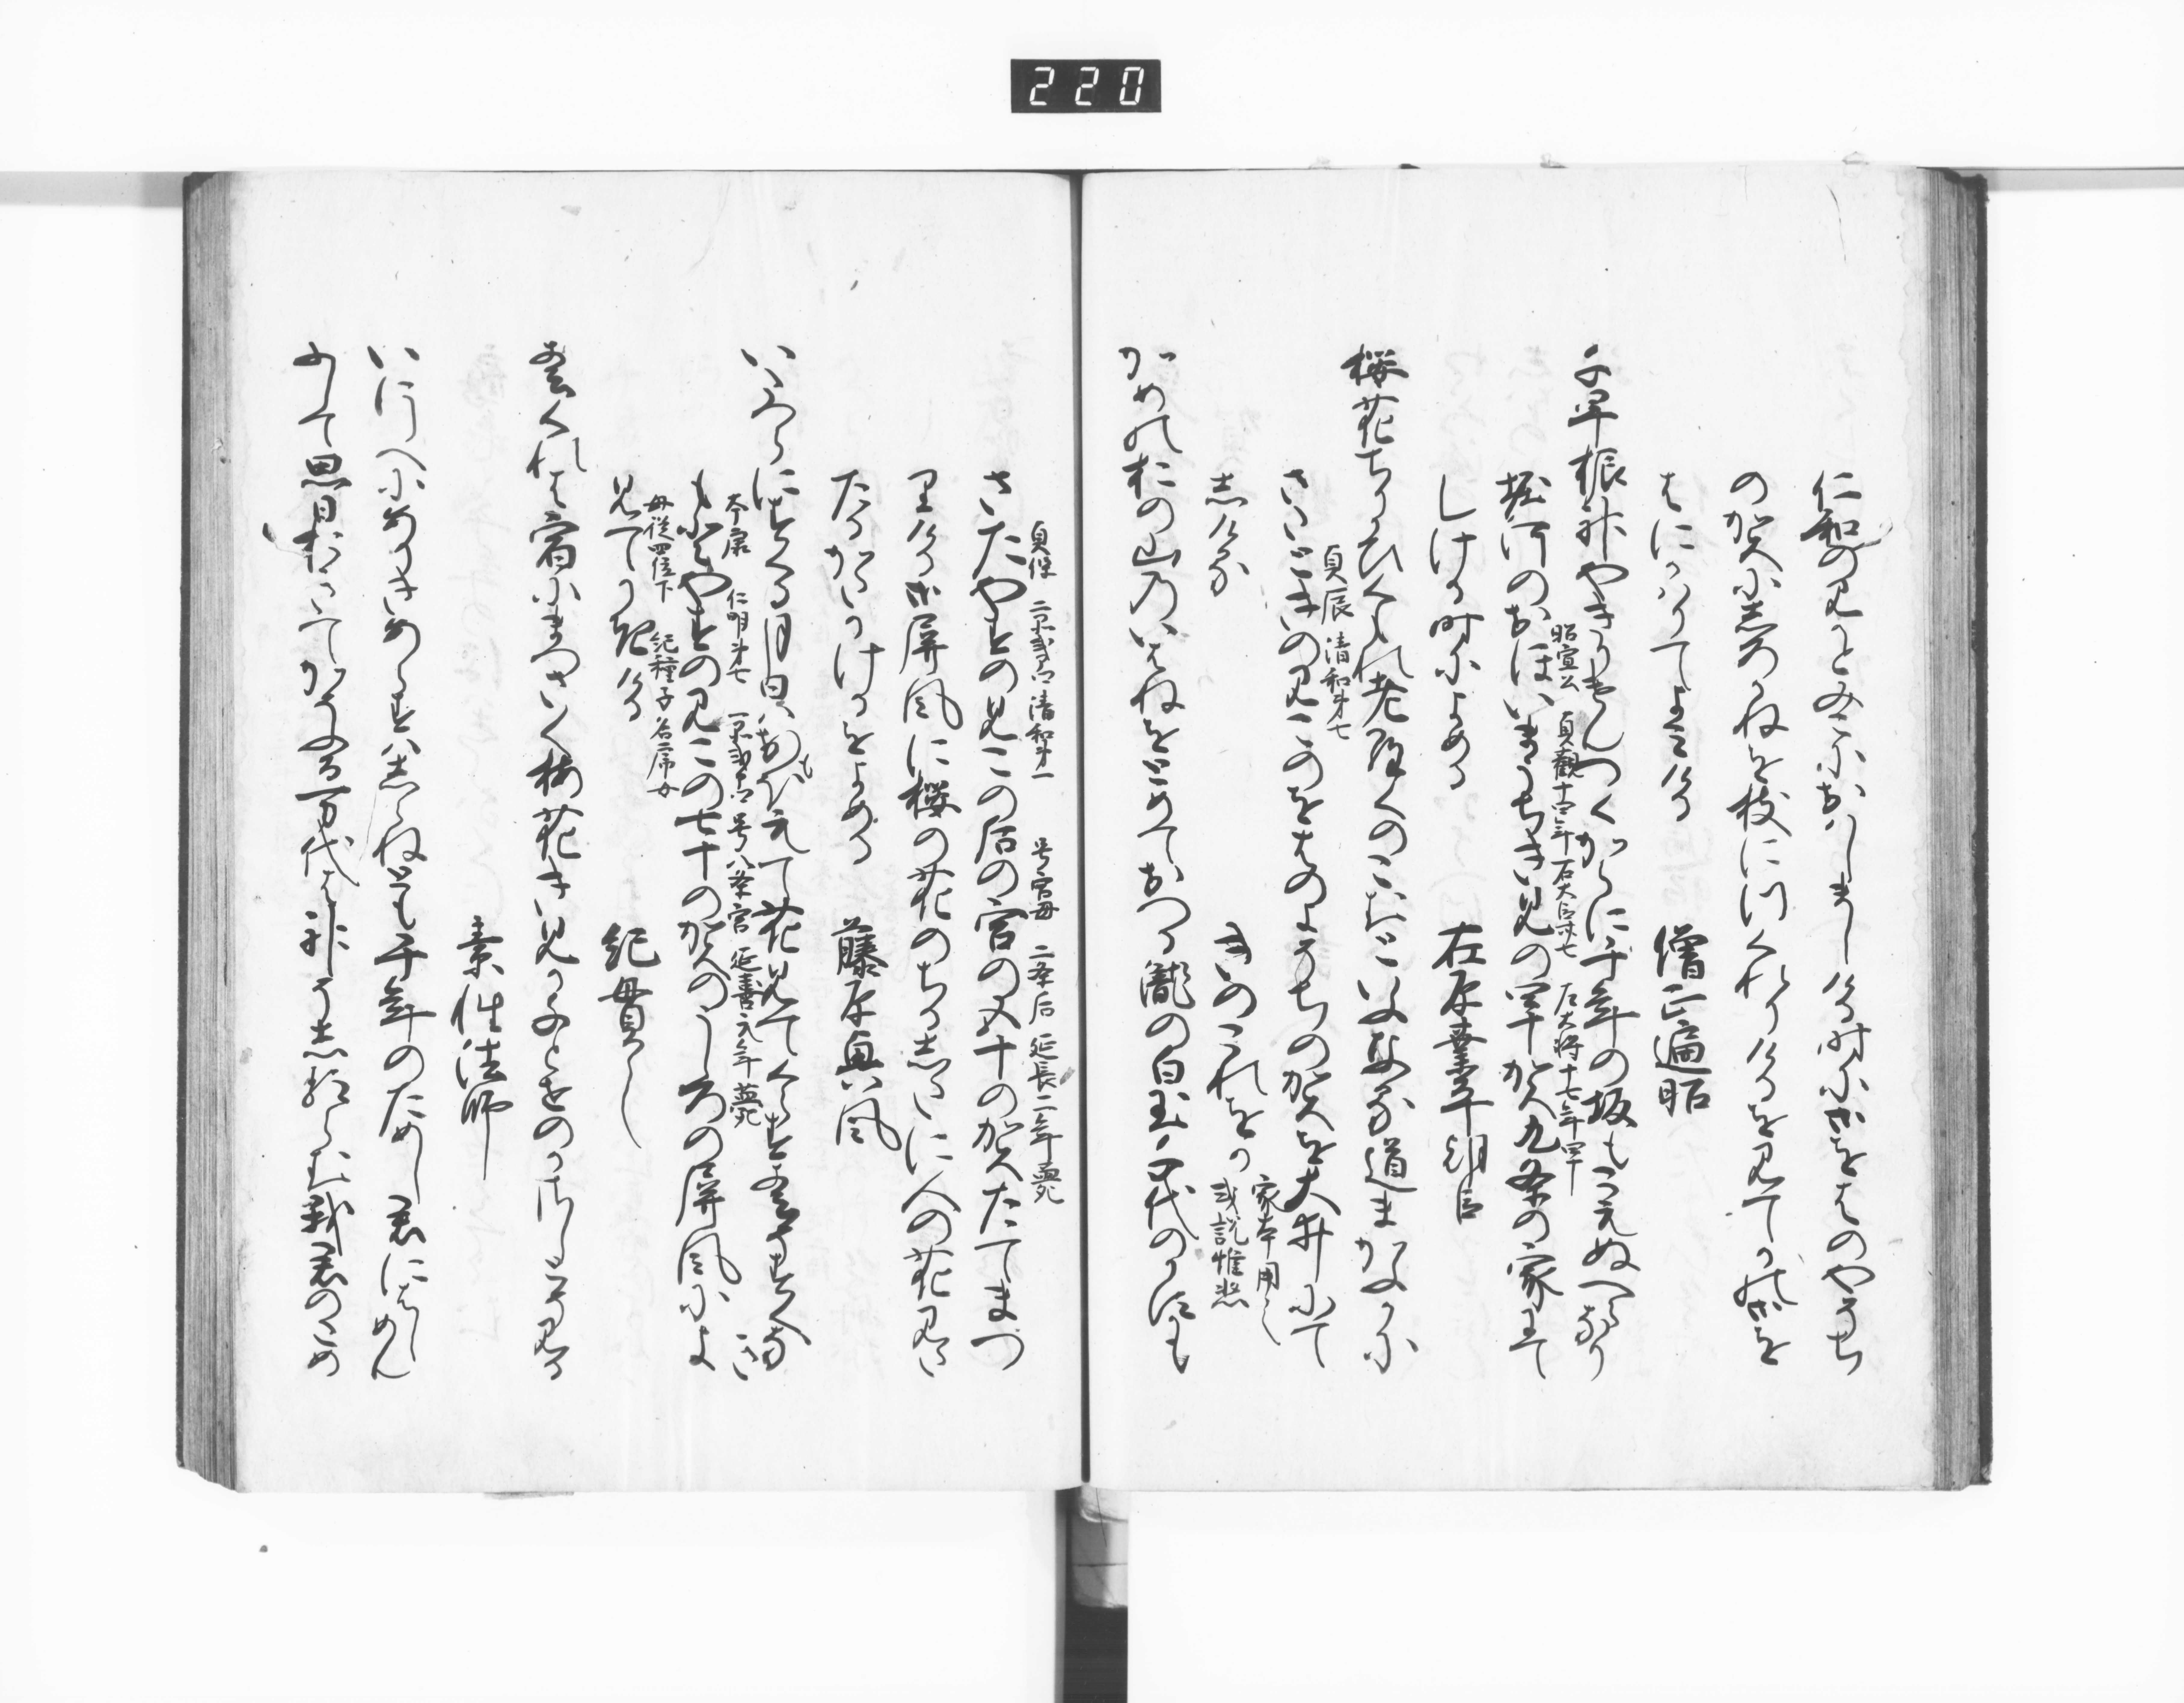 220
仁和の見かとみこにおはしましける時に御をはのやそち
の賀にしろかねを杖につくれりけるを見てかの御を
はにかはりてよみける
僧正遍昭
千早振神やきりけんつくからに千年の坂もこえぬへらなり
昭宣公 貞観十四年右大臣卅七 左大将十七年四十
堀河のおほいまうちきみの四十賀九条の家にて
しける時によめる
在原業平朝臣
桜花ちりかひくもれ老らくのこむといふなる道まかふかに
貞辰 清和第七
さたときの見このをはのよそちの賀を大井にて
しけるか
きのこれをか
家本用之
或説惟熙
かめのおの山のいはねをとめておつる瀧の白玉千代のかすかも
貞保 二品式部卿 清和第一 号南宮 母二条后 延長二年薨
さたやすの見この后の宮の五十の賀たてまつ
りける御屏風に桜の花のちるしたに人の花見
たるかたかけるをよめる
藤原興風
いたつらにすくる月日はおもほえて花見てくらす春そすくなき
本康 仁明第七 一品式部卿 号八条宮 延喜元年薨
母従四位下 紀種子 名虎女
もとやすの見この七十の賀のうしろの屏風によ
見てかきける
紀貫之
春くれは宿にまつさく梅花きみかちとせのかさしとそ見る
素性法師
いにしへにありきあらすはしらねとも千年のためし君にはしめん
ふして思おきてかそふる万代は神そしるらむ我君のため